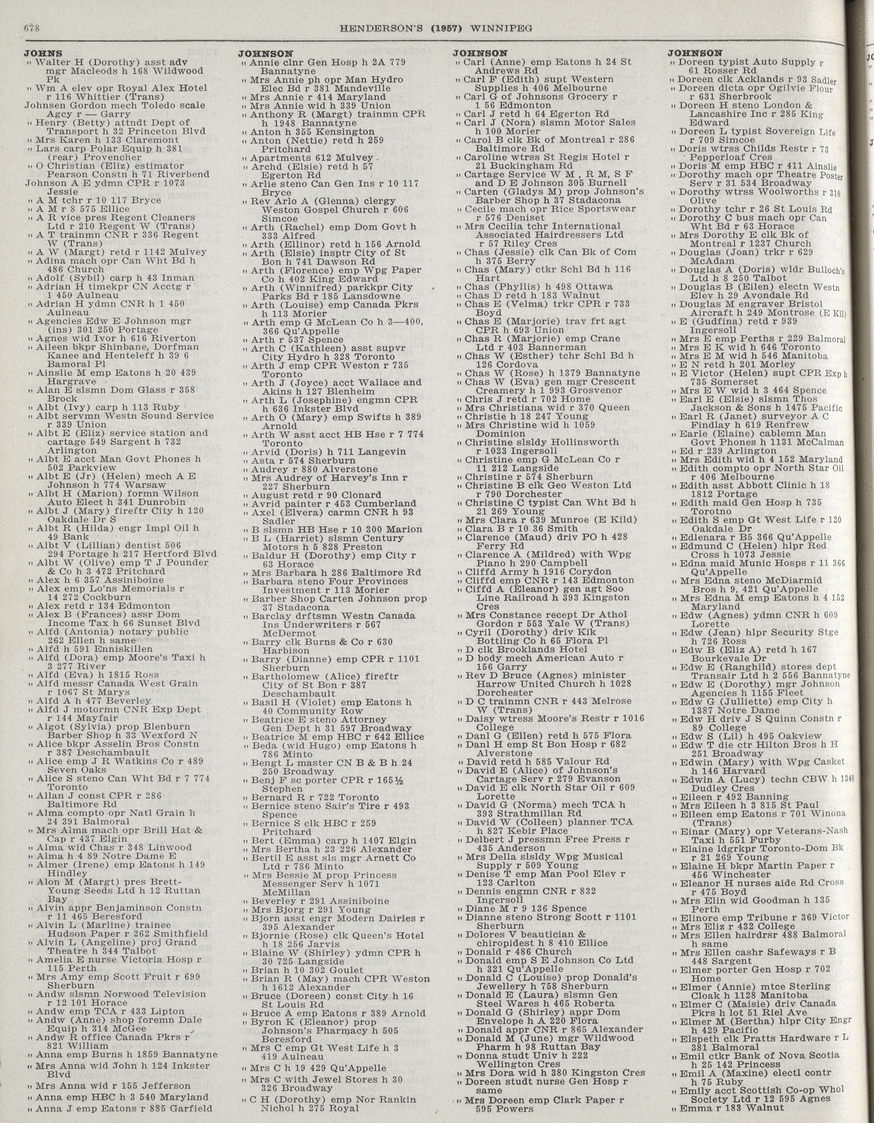 678
HENDERSON'S (1957) WINNIPEG
JOHNS
" Walter H (Dorothy) asst adv
mgr Macleods h 168 Wildwood
Pk
" Wm A elev opr Royal Alex Hotel
r 116 Whittier (Trans)
Johnsen Gordon mech Toledo scale
Agcy r — Garry
" Henry (Betty) attndt Dept of
Transport h 32 Princeton Blvd
" Mrs Karen h 133 Claremont
" Lars carp Polar Equip h 381
(rear) Provencher
" O Christian (Eliz) estimator
Pearson Constn h 71 Riverbend
Johnson A E ydmn CPR r 1073
Jessie
" A M tchr r 10 117 Bryce
" A M r 8 575 Ellice
" A R vice pres Regent Cleaners
Ltd r 210 Regent W (Trans)
" A T trainmn CNR r 336 Regent
W (Trans)
" A W (Margt) retd r 1142 Mulvey
" Adina mach opr Can Wht Bd h
486 Church
" Adolf (Sybil) carp h 43 Inman
" Adrian H timekpr CN Acctg r
1 450 Aulneau
" Adrian H ydmn CNR h 1 450
Aulneau
" Agencies Edw E Johnson mgr
(ins) 301 250 Portage
" Agnes wid Ivor h 616 Riverton
" Aileen bkpr Shinbane, Dorfman
Kanee and Henteleff h 39 6
Bamoral Pl
" Ainslie M emp Eatons h 20 439
Hargrave
" Alan E slsmn Dom Glass r 358
Brock
" Albt (Ivy) carp h 113 Ruby
" Albt servmn Westn Sound Service
r 339 Union
" Albt E (Eliz) service station and
cartage 549 Sargent h 732
Arlington
" Albt E acct Man Govt Phones h
502 Parkview
" Albt E (Jr) (Helen) mech A E
Johnson h 774 Warsaw
" Albt H (Marion) formn Wilson
Auto Elect h 341 Dunrobin
" Albt J (Mary) fireftr City h 120
Oakdale Dr S
" Albt R (Hilda) engr Impl Oil h
49 Bank
" Albt V (Lillian) dentist 506
294 Portage h 217 Hertford Blvd
" Albt W (Olive) emp T J Pounder
& Co h 3 472 Pritchard
" Alex h 6 357 Assiniboine
" Alex emp Lo'ns Memorials r
14 272 Cockburn
" Alex retd r 134 Edmonton
" Alex B (Frances) assr Dom
Income Tax h 66 Sunset Blvd
" Alfd (Antonia) notary public
262 Ellen h same
" Alfd h 591 Enniskillen
" Alfd (Dora) emp Moore's Taxi h
3 277 River
" Alfd (Eva) h 1815 Ross
" Alfd messr Canada West Grain
r 1067 St Marys
" Alfd A h 477 Beverley
" Alfd J motormn CNR Exp Dept
r 144 Mayfair
" Algot (Sylvia) prop Blenburn
Barber Shop h 33 Wexford N
" Alice bkpr Asselin Bros Constn
r 387 Deschambault
" Alice emp J R Watkins Co r 489
Seven Oaks
" Alice S steno Can Wht Bd r 7 774
Toronto
" Allan J const CPR r 286
Baltimore Rd
" Alma compto opr Natl Grain h
24 391 Balmoral
" Mrs Alma mach opr Brill Hat &
Cap r 437 Elgin
" Alma wid Chas r 348 Linwood
" Alma h 4 89 Notre Dame E
" Almer (Irene) emp Eatons h 149
Hindley
" Alon M (Margt) pres Brett-
Young Seeds Ltd h 12 Ruttan
Bay
" Alvin appr Benjaminson Constn
r 11 465 Beresford
" Alvin L (Marline) trainee
Hudson Paper r 262 Smithfield
" Alvin L (Angeline) proj Grand
Theatre h 344 Talbot
" Amelia E nurse Victoria Hosp r
115 Perth
" Mrs Amy emp Scott Fruit r 699
Sherburn
" Andw slsmn Norwood Television
r 12 101 Horace
" Andw emp TCA r 433 Lipton
" Andw (Anne) shop foremn Dale
Equip h 314 McGee
" Andw R office Canada Pkrs r
821 William
" Anna emp Burns h 1859 Bannatyne
" Mrs Anna wid John h 124 Inkster
Blvd
" Mrs Anna wid r 155 Jefferson
" Anna emp HBC h 3 540 Maryland
" Anna J emp Eatons r 885 Garfield
JOHNSON
" Annie clnr Gen Hosp h 2A 779
Bannatyne
" Mrs Annie ph opr Man Hydro
Elec Bd r 381 Mandeville
" Mrs Annie r 414 Maryland
" Mrs Annie wid h 339 Union
" Anthony R (Margt) trainmn CPR
h 1948 Bannatyne
" Anton h 355 Kensington
" Anton (Nettie) retd h 259
Pritchard
" Apartments 612 Mulvey
" Archd (Elsie) retd h 57
Egerton Rd
" Arlie steno Can Gen Ins r 10 117
Bryce
" Rev Arlo A (Glenna) clergy
Weston Gospel Church r 606
Simcoe
" Arth (Rachel) emp Dom Govt h
333 Alfred
" Arth (Ellinor) retd h 156 Arnold
" Arth (Elsie) insptr City of St
Bon h 741 Dawson Rd
" Arth (Florence) emp Wpg Paper
Co h 402 King Edward
" Arth (Winnifred) parkkpr City
Parks Bd r 185 Lansdowne
" Arth (Louise) emp Canada Pkrs
h 113 Morier
" Arth emp G McLean Co h 3—400,
366 Qu'Appelle
" Arth r 537 Spence
" Arth C (Kathleen) asst supvr
City Hydro h 328 Toronto
" Arth J emp CPR Weston r 735
Toronto
" Arth J (Joyce) acct Wallace and
Akins h 127 Blenheim
" Arth L (Josephine) engmn CPR
h 636 Inkster Blvd
" Arth O (Mary) emp Swifts h 389
Arnold
" Arth W asst acct HB Hse r 7 774
Toronto
" Arvid (Doris) h 711 Langevin
" Asta r 574 Sherburn
" Audrey r 880 Alverstone
" Mrs Audrey of Harvey's Inn r
227 Sherburn
" August retd r 90 Clonard
" Avrid painter r 453 Cumberland
" Axel (Elvera) carmn CNR h 93
Sadler
" B slsmn HB Hse r 10 300 Marion
" B L (Harriet) slsmn Century
Motors h 5 828 Preston
" Baldur H (Dorothy) emp City r
63 Horace
" Mrs Barbara h 286 Baltimore Rd
" Barbara steno Four Provinces
Investment r 113 Morier
" Barber Shop Carten Johnson prop
37 Stadacona
" Barclay drftsmn Westn Canada
Ins Underwriters r 567
McDermot
" Barry clk Burns & Co r 630
Harbison
" Barry (Dianne) emp CPR r 1101
Sherburn
" Bartholomew (Alice) fireftr
City of St Bon r 387
Deschambault
" Basil H (Violet) emp Eatons h
40 Community Row
" Beatrice E steno Attorney
Gen Dept h 31 597 Broadway
" Beatrice M emp HBC r 642 Ellice
" Beda (wid Hugo) emp Eatons h
786 Minto
" Bengt L master CN B & B h 24
250 Broadway
" Benj F sc porter CPR r 165½
Stephen
" Bernard R r 722 Toronto
" Bernice steno Sair's Tire r 493
Spence
" Bernice S clk HBC r 259
Pritchard
" Bert (Emma) carp h 1407 Elgin
" Mrs Bertha h 23 226 Alexander
" Bertil E asst sls mgr Arnett Co
Ltd r 786 Minto
" Mrs Bessie M prop Princess
Messenger Serv h 1071
McMillan
" Beverley r 291 Assiniboine
" Mrs Bjorg r 291 Young
" Bjorn asst engr Modern Dairies r
395 Alexander
" Bjornie (Rose) clk Queen's Hotel
h 18 256 Jarvis
" Blaine W (Shirley) ydmn CPR h
30 725 Langside
" Brian h 10 302 Goulet
" Brian R (May) mach CPR Weston
h 1612 Alexander
" Bruce (Doreen) const City h 16
St Louis Rd
" Bruce A emp Eatons r 389 Arnold
" Byron K (Eleanor) prop
Johnson's Pharmacy h 505
Beresford
" Mrs C emp Gt West Life h 3
419 Aulneau
" Mrs C h 19 429 Qu'Appelle
" Mrs C with Jewel Stores h 30
326 Broadway
" C H (Dorothy) emp Nor Rankin
Nichol h 275 Royal
JOHNSON
" Carl (Anne) emp Eatons h 24 St
Andrews Rd
" Carl F (Edith) supt Western
Supplies h 406 Melbourne
" Carl G of Johnsons Grocery r
1 56 Edmonton
" Carl J retd h 64 Egerton Rd
" Carl J (Nora) slsmn Motor Sales
h 100 Morier
" Carol B clk Bk of Montreal r 286
Baltimore Rd
" Caroline wtrss St Regis Hotel r
21 Buckingham Rd
" Cartage Service W M , R M, S F
and D E Johnson 305 Burnell
" Carten (Gladys M) prop Johnson's
Barber Shop h 37 Stadacona
" Cecile mach opr Rice Sportswear
r 576 Deniset
" Mrs Cecilia tchr International
Associated Hairdressers Ltd
r 57 Riley Cres
" Chas (Jessie) clk Can Bk of Com
h 375 Berry
" Chas (Mary) ctkr Schl Bd h 116
Hart
" Chas (Phyllis) h 498 Ottawa
" Chas D retd h 183 Walnut
" Chas E (Velma) trkr CPR r 733
Boyd
" Chas E (Marjorie) trav frt agt
CPR h 693 Union
" Chas R (Marjorie) emp Crane
Ltd r 403 Bannerman
" Chas W (Esther) tchr Schl Bd h
126 Cordova
" Chas W (Rose) h 1379 Bannatyne
" Chas W (Eva) gen mgr Crescent
Creamery h 1 993 Grosvenor
" Chris J retd r 702 Home
" Mrs Christiana wid r 370 Queen
" Christie h 18 247 Young
" Mrs Christine wid h 1059
Dominion
" Christine slsldy Hollinsworth
r 1023 Ingersoll
" Christine emp G McLean Co r
11 212 Langside
" Christine r 574 Sherburn
" Christine B clk Geo Weston Ltd
r 790 Dorchester
" Christine C typist Can Wht Bd h
21 269 Young
" Mrs Clara r 639 Munroe (E Kild)
" Clara B r 10 36 Smith
" Clarence (Maud) driv PO h 428
Ferry Rd
" Clarence A (Mildred) with Wpg
Piano h 290 Campbell
" Cliffd Army h 1916 Corydon
" Cliffd emp CNR r 143 Edmonton
" Ciffd A (Eleanor) gen agt Soo
Line Railroad h 393 Kingston
Cres
" Mrs Constance recept Dr Athol
Gordon r 553 Yale W (Trans)
" Cyril (Dorothy) driv Kik
Bottling Co h 65 Flora Pl
" D clk Brooklands Hotel
" D body mech American Auto r
156 Garry
" Rev D Bruce (Agnes) minister
Harrow United Church h 1028
Dorchester
" D C trainmn CNR r 443 Melrose
W (Trans)
" Daisy wtress Moore's Restr r 1016
College
" Danl G (Ellen) retd h 575 Flora
" Danl H emp St Bon Hosp r 682
Alverstone
" David retd h 585 Valour Rd
" David E (Alice) of Johnson's
Cartage Serv r 279 Evanson
" David E clk North Star Oil r 609
Lorette
" David G (Norma) mech TCA h
393 Strathmillan Rd
" David W (Colleen) planner TCA
h 827 Kebir Place
" Delbert J pressmn Free Press r
435 Anderson
" Mrs Della slsldy Wpg Musical
Supply r 509 Young
" Denise T emp Man Pool Elev r
123 Carlton
" Dennis engmn CNR r 832
Ingersoll
" Diane M r 9 136 Spence
" Dianne steno Strong Scott r 1101
Sherburn
" Dolores V beautician &
chiropidest h 8 410 Ellice
" Donald r 486 Church
" Donald emp S E Johnson Co Ltd
h 321 Qu'Appelle
" Donald C (Louise) prop Donald's
Jewellery h 758 Sherburn
" Donald E (Laura) slsmn Gen
Steel Wares h 465 Roberta
" Donald G (Shirley) appr Dom
Envelope h A 220 Flora
" Donald appr CNR r 865 Alexander
" Donald M (June) mgr Wildwood
Pharm h 98 Ruttan Bay
" Donna studt Univ h 222
Wellington Cres
" Mrs Dora wid h 380 Kingston Cres
" Doreen studt nurse Gen Hosp r
same
" Mrs Doreen emp Clark Paper r
595 Powers
JOHNSON
" Doreen typist Auto Supply r
61 Rosser Rd
" Doreen clk Acklands r 93 Sadler
" Doreen dicta opr Ogilvie Flour
r 631 Sherbrook
" Doreen H steno London &
Lancashire Inc r 285 King
Edward
" Doreen L typist Sovereign Life
r 709 Simcoe
" Doris wtrss Childs Restr r 73
Pepperloaf Cres
" Doris M emp HBC r 411 Ainslie
" Dorothy mach opr Theatre Poster
Serv r 31 534 Broadway
" Dorothy wtrss Woolworths r 316
Olive
" Dorothy tchr r 26 St Louis Rd
" Dorothy C bus mach opr Can
Wht Bd r 63 Horace
" Mrs Dorothy E clk Bk of
Montreal r 1237 Church
" Douglas (Joan) trkr r 629
McAdam
" Douglas A (Doris) wldr Bulloch's
Ltd h 8 250 Talbot
" Douglas B (Eileen) electn Westn
Elev h 29 Avondale Rd
" Douglas M engraver Bristol
Aircraft h 249 Montrose (E Kil)
" E (Gudfina) retd r 939
Ingersoll
" Mrs E emp Perths r 229 Balmoral
" Mrs E K wid h 646 Toronto
" Mrs E M wid h 546 Manitoba
" E N retd h 201 Morley
" E Victor (Helen) supt CPR Exp h
735 Somerset
" Mrs E W wid h 3 464 Spence
" Earl E (Elsie) slsmn Thos
Jackson & Sons h 1475 Pacific
" Earl R (Janet) surveyor A C
Findlay h 619 Renfrew
" Earle (Elaine) cablemn Man
Govt Phones h 1131 McCalman
" Ed r 239 Arlington
" Mrs Edith wid h 4 152 Maryland
" Edith compto opr North Star Oil
r 406 Melbourne
" Edith asst Abbott Clinic h 18
1812 Portage
" Edith maid Gen Hosp r 735
Torotno
" Edith S emp Gt West Life r 120
Oakdale Dr
" Edlenara r B5 366 Qu'Appelle
" Edmund C (Helen) hlpr Red
Cross h 1073 Jessie
" Edna maid Munic Hosps r 11 366
Qu'Appelle
" Mrs Edna steno McDiarmid
Bros h 9, 421 Qu'Appelle
" Mrs Edna M emp Eatons h 4 152
Maryland
" Edw (Agnes) ydmn CNR h 609
Lorette
" Edw (Jean) hlpr Security Stge
h 726 Ross
" Edw B (Eliz A) retd h 167
Bourkevale Dr
" Edw E (Ranghild) stores dept
Transair Ltd h 2 556 Bannatyne
" Edw E (Dorothy) mgr Johnson
Agencies h 1155 Fleet
" Edw G (Julliette) emp City h
1387 Notre Dame
" Edw H driv J S Quinn Constn r
89 College
" Edw S (Lil) h 495 Oakview
" Edw T die ctr Hilton Bros h H
251 Broadway
" Edwin (Mary) with Wpg Casket
h 146 Harvard
" Edwin A (Lucy) techn CBW h 1346
Dudley Cres
" Eileen r 492 Banning
" Mrs Eileen h 3 815 St Paul
" Eileen emp Eatons r 701 Winona
(Trans)
" Einar (Mary) opr Veterans-Nash
Taxi h 551 Furby
" Elaine ldgrkpr Toronto-Dom Bk
r 21 269 Young
" Elaine H bkpr Martin Paper r
456 Winchester
" Eleanor H nurses aide Rd Cross
r 475 Boyd
" Mrs Elin wid Goodman h 135
Perth
" Elinore emp Tribune r 369 Victor
" Mrs Eliz r 432 College
" Mrs Ellen hairdrsr 488 Balmoral
h same
" Mrs Ellen cashr Safeways r B
448 Sargent
" Elmer porter Gen Hosp r 702
Home
" Elmer (Annie) mtce Sterling
Cloak h 1128 Manitoba
" Elmer C (Maisie) driv Canada
Pkrs h lot 51 Riel Ave
" Elmer M (Bertha) hlpr City Engr
h 429 Pacific
" Elspeth clk Pratts Hardware r L
381 Balmoral
" Emil ctkr Bank of Nova Scotia
h 25 142 Princess
" Emil A (Maxine) electl contr
h 75 Ruby
" Emily acct Scottish Co-op Whol
Society Ltd r 12 595 Agnes
" Emma r 183 Walnut